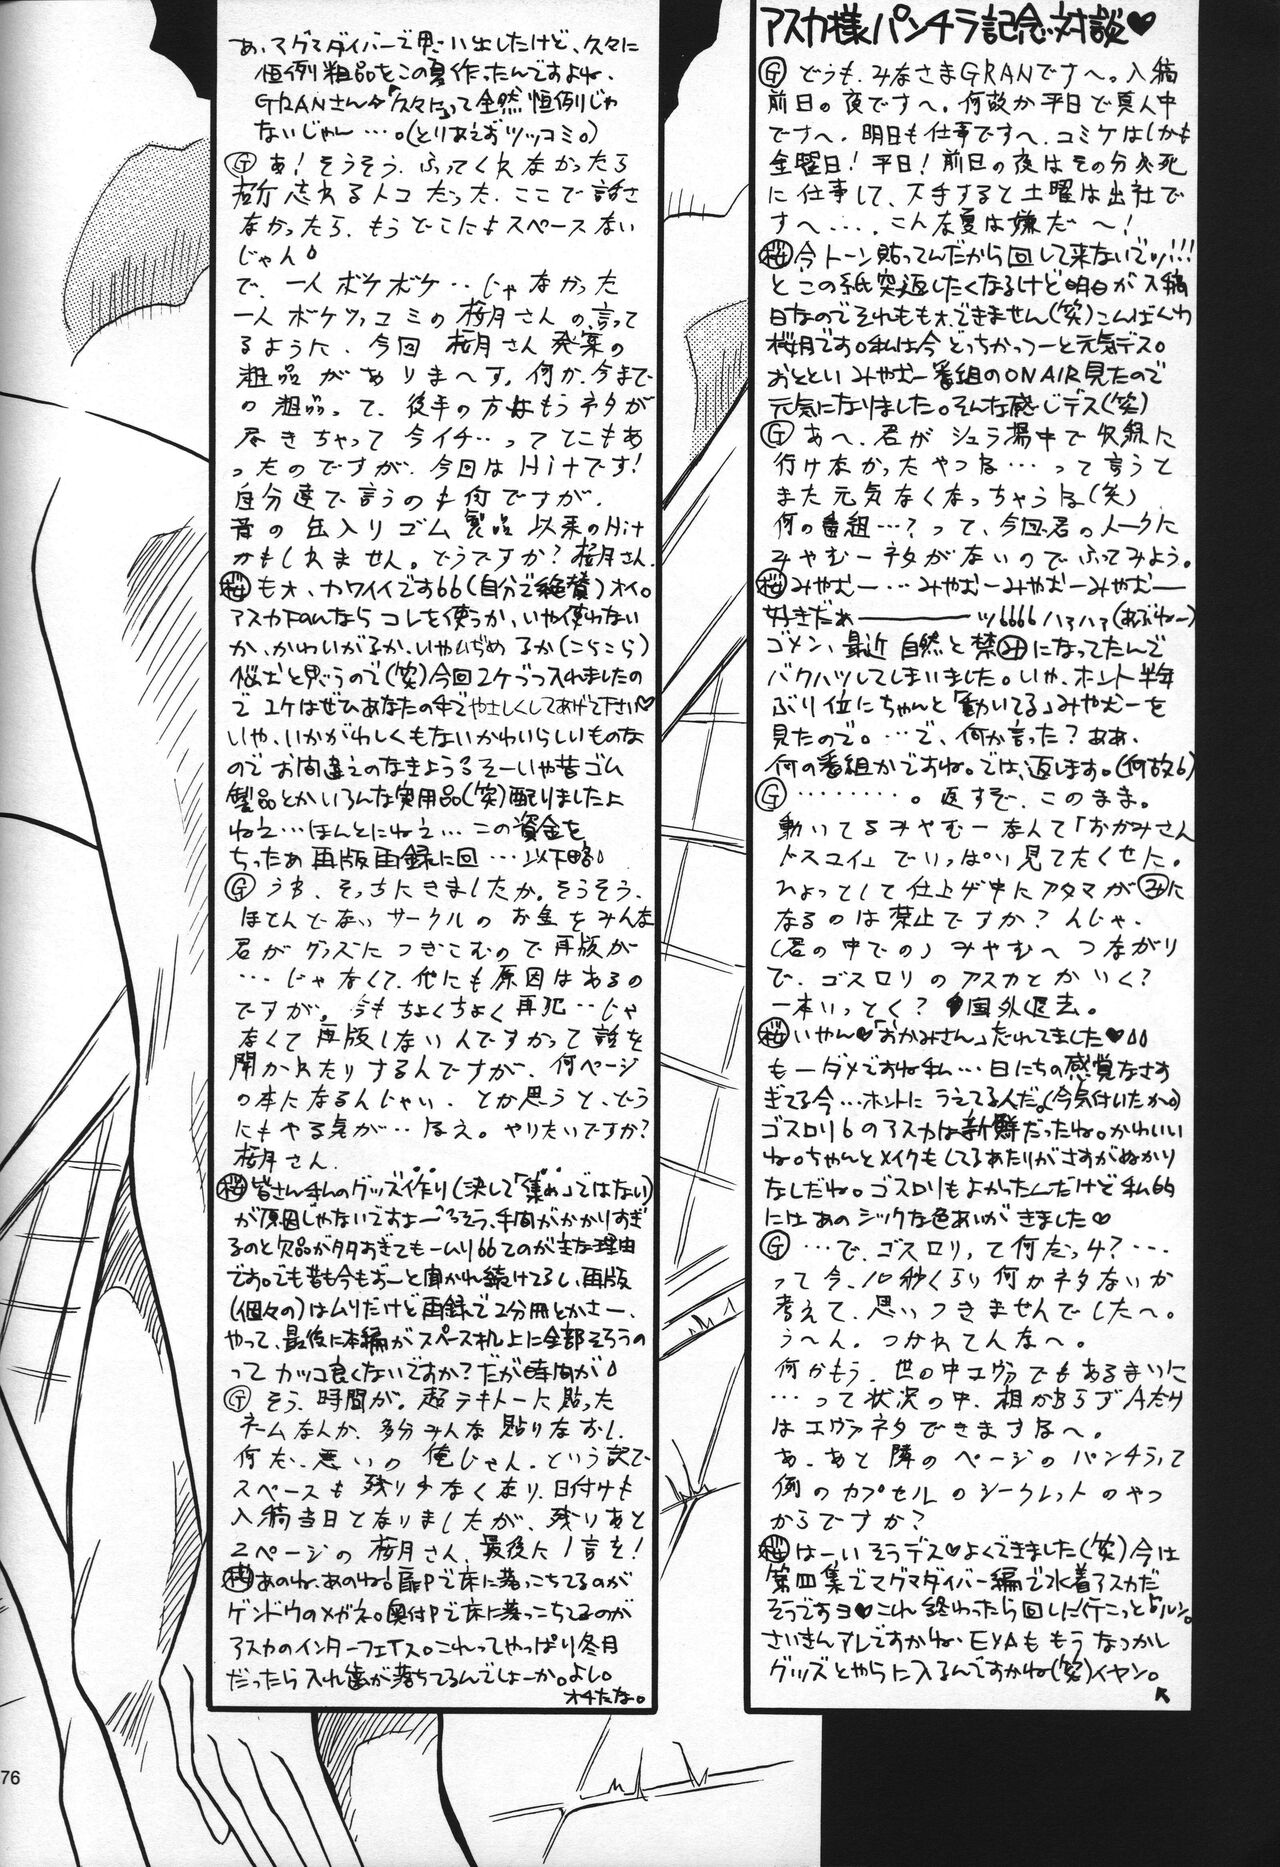 アスカ様パンチラ記念対談♥
Ⓖどうも、みなさまGRANです〜。入稿
前日の夜です〜。何故か平日で真人中
です〜。明日も仕事です〜、コミケはしかも
金曜日!平日!前日の夜はその分必死
に仕事して、下手すると土曜は出社で
す〜・・・。こんな夏は嫌だ〜!
桜今トーン貼ってんだから回して来ないでッ!!!
とこの紙突返したくなるけど明日が入稿
日なのでそれももォ、できません(笑)こんばんわ
桜月です。私は今どっちかっつーと元気デス。
おとといみやむー番組のON AIR見たので
元気になりました。そんな感じデス(笑)
Ⓖあ〜、君がシュラ場中で
行けなかったやつな・・・って言うと
また元気なくなっちゃうな(笑)
何の番組・・・?って、今回君のトークに
みやむーネタがないのでふってみよう。
桜みやむー・・・みやむーみやむーみやむー
好きだぁ――――ッ ハァハァ(あぶねー)
ゴメン、最近自然と禁みになってたんで
バクハツしてしまいました。いや、ホント半年
ぶり位にちゃんと「動いてる」みやむーを
見たので。・・・で、何か言った?ああ、
何の番組かですね。では、返します。(何故)
Ⓖ・・・・・・・・。返すぞ、このまま。
動いてるみやむーなんて「おかみさん
ドスコイ」でいっぱい見てたくせに。
ひょっとして仕上げ中にアタマがみに
なるのは禁止ですか?んじゃ、
(君の中での)みやむ〜つながり
で、ゴスロリのアスカとかいく?
一本いっとく?国外退去。
桜いやん♥「おかみさん」たれてました♥
もーダメですね私・・・日にちの感覚なさす
ぎてる今・・・ホントにうえてる人だ。(今気付いたか。)
ゴスロリのアスカは新鮮だったね。かわいい
ね。ちゃんとメイクもしてるあたりがさすがぬかり
なしだね。ゴスロリもよかったんだけど私的
にはあのシックな色あいがきました♥
Ⓖ・・・で、ゴスロリって何だっけ?・・・
って今、10秒くらい何かネタないか
考えて、思いつきませんでした〜。
う〜ん。つかれてんな〜。
何かもう、世の中エヴァでもあるまいに
・・・って状況の中、相かわらずAたり
はエヴァネタできますな〜。
あ、あと隣のページのパンチラって
例のカプセルのシークレットのやつ
からですか?
桜はーいそうデス♥よくできました(笑)今は
第四集でマグマダイバー編で水着アスカだ
そうですヨ♥これ終わったら回しに行こっとルン。
さいきんアレですかね、EVAももうなつかし
グッズとやらに入るんですかね(笑)イヤン。
↖
あ、マグマダイバーで思い出したけど、久々に
恒例粗品をこの夏作ったんですよね。
GRANさん今「久々に」って全然恒例じゃ
ないじゃん・・・。(とりあえずツッコミ。)
Ⓖあ!そうそう、ふってくれなかったら
忘れるトコだった、ここで話さ
なかったら、もうどこにもスペースない
じゃん。
で、一人ボケボケ・・じゃなかった
一人ボケツッコミの桜月さんの言って
るように、今回桜月さん発案の
粗品がありま〜す。何か、今まで
の粗品って、後半の方はもうネタが
尽きちゃって今イチ・・ってとこもあ
ったのですが、今回はHitです!
自分達で言うのも何ですが、
昔の缶入りゴム製品以来のHit
かもしれません。どうですか?桜月さん。
桜もォ、カワイイです(自分で絶賛)オイ。
アスカFanならコレを使うか、いや使わない
か、かわいがるか、いやいぢめるか(こらこら)
思うので(笑)今回2ケづつ入れましたの
で1ケはぜひあなたの手でやさしくしてあげて下さい♥
いや、いかがわしくもないかわいらしいものな
のでお間違えのなきよう。そーいや昔ゴム
製品とかいろんな実用品(笑)配りましたよ
ねえ・・・ほんとにねえ・・・この資金を
ちったあ再版再録に回・・・以下略。
Ⓖうわ、そっちにきましたか。そうそう、
ほとんどないサークルのお金をみんな
君がグッズにつぎこむので再版が
・・・じゃなくて、他にも原因はあるの
ですが。今もちょくちょく再犯・・じゃ
なくて再版しないんですかって話を
聞かれたりするんですが、何ページ
の本になるんじゃい、とか思うと、どう
にもやる気が・・・ねえ。やりたいですか?
桜月さん。
桜皆さん私のグッズ作り(決して「集め」ではない)
が原因じゃないですよー。そう、手間がかかりすぎ
るのと欠品が多すぎてもームリってのが主な理由
です。でも昔も今もずーと聞かれ続けてるし、再版
(個々の)はムリだけど再録で2分冊とかさー、
やって、最後に本編がスペース机上に全部そろうの
ってカッコ良くないですか?だが時間が。
Ⓖそう、時間が。超テキトーに貼った
ネームなんか、多分みんな貼りなおし、
何だ、悪いの俺じゃん。という訳で、
スペースも残り少なくなり、日付けも
入稿当日となりましたが、残りあと
2ページの桜月さん、最後に1言を!
桜あのね、あのね!扉Pで床に落っこちてるのが
ゲンドウのメガネ。奥付Pで床に落っこちてるのが
アスカのインターフェイス。これってやっぱり冬月
だったら入れ歯が落ちてるんでしょーか。よし。
オチたな。
76